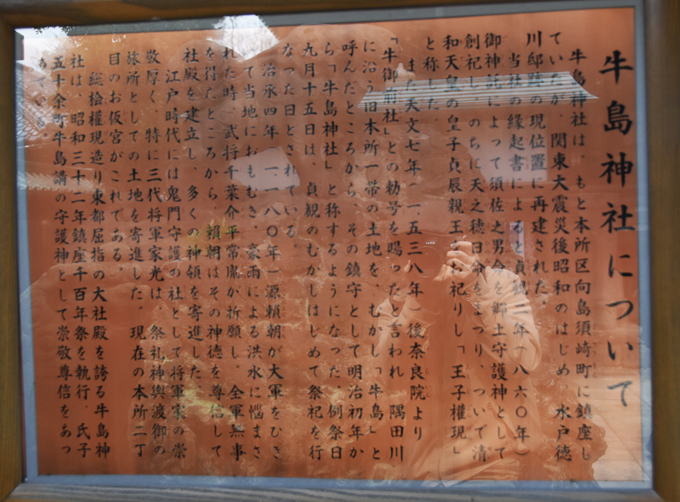 牛島神社について
牛島神社は、もと本所区向島須崎町に鎮座し
ていたが、関東大震災後昭和のはじめ、水戸徳
川邸跡の現位置に再建された。
当社の縁起書によると貞観二年(八六〇年)
御神託によって須佐之男命を郷土守護神として
創祀し、のちに天之穂日命をまつり、ついで清
和天皇の皇子貞辰親王を祀りし「王子権現」
と称した。
また天文七年(一、五三八年)後奈良院より
「牛御前社」との勅号を賜ったと言われ、隅田川
に沿う旧本所一帯の土地を、むかし「牛島」と
呼んだところから、その鎮守として明治初年か
ら「牛島神社」と称するようになった。例祭日
九月十五日は、貞観のむかしはじめて祭祀を行
なった日とされている。
治承四年(一、一八〇年)源頼朝が大軍をひき
て当地におもむき、豪雨による洪水に悩まさ
れた時、武将千葉介平常胤が祈願し、全軍無事
を得たところから、頼朝はその神徳を尊信して
社殿を建立し、多くの神領を寄進した。
江戸時代には鬼門守護の社として将軍家の崇
敬厚く、特に三代将軍家光は、祭礼神輿渡御の
旅所としての土地を寄進した。現在の本所二丁
目のお仮宮がこれである。
総檜權現造り東都屈指の大社殿を誇る牛島神
社は、昭和三十二年鎮座千百年祭を執行、氏子
五十余町牛島講の守護神として崇敬尊信をあつ
めている。